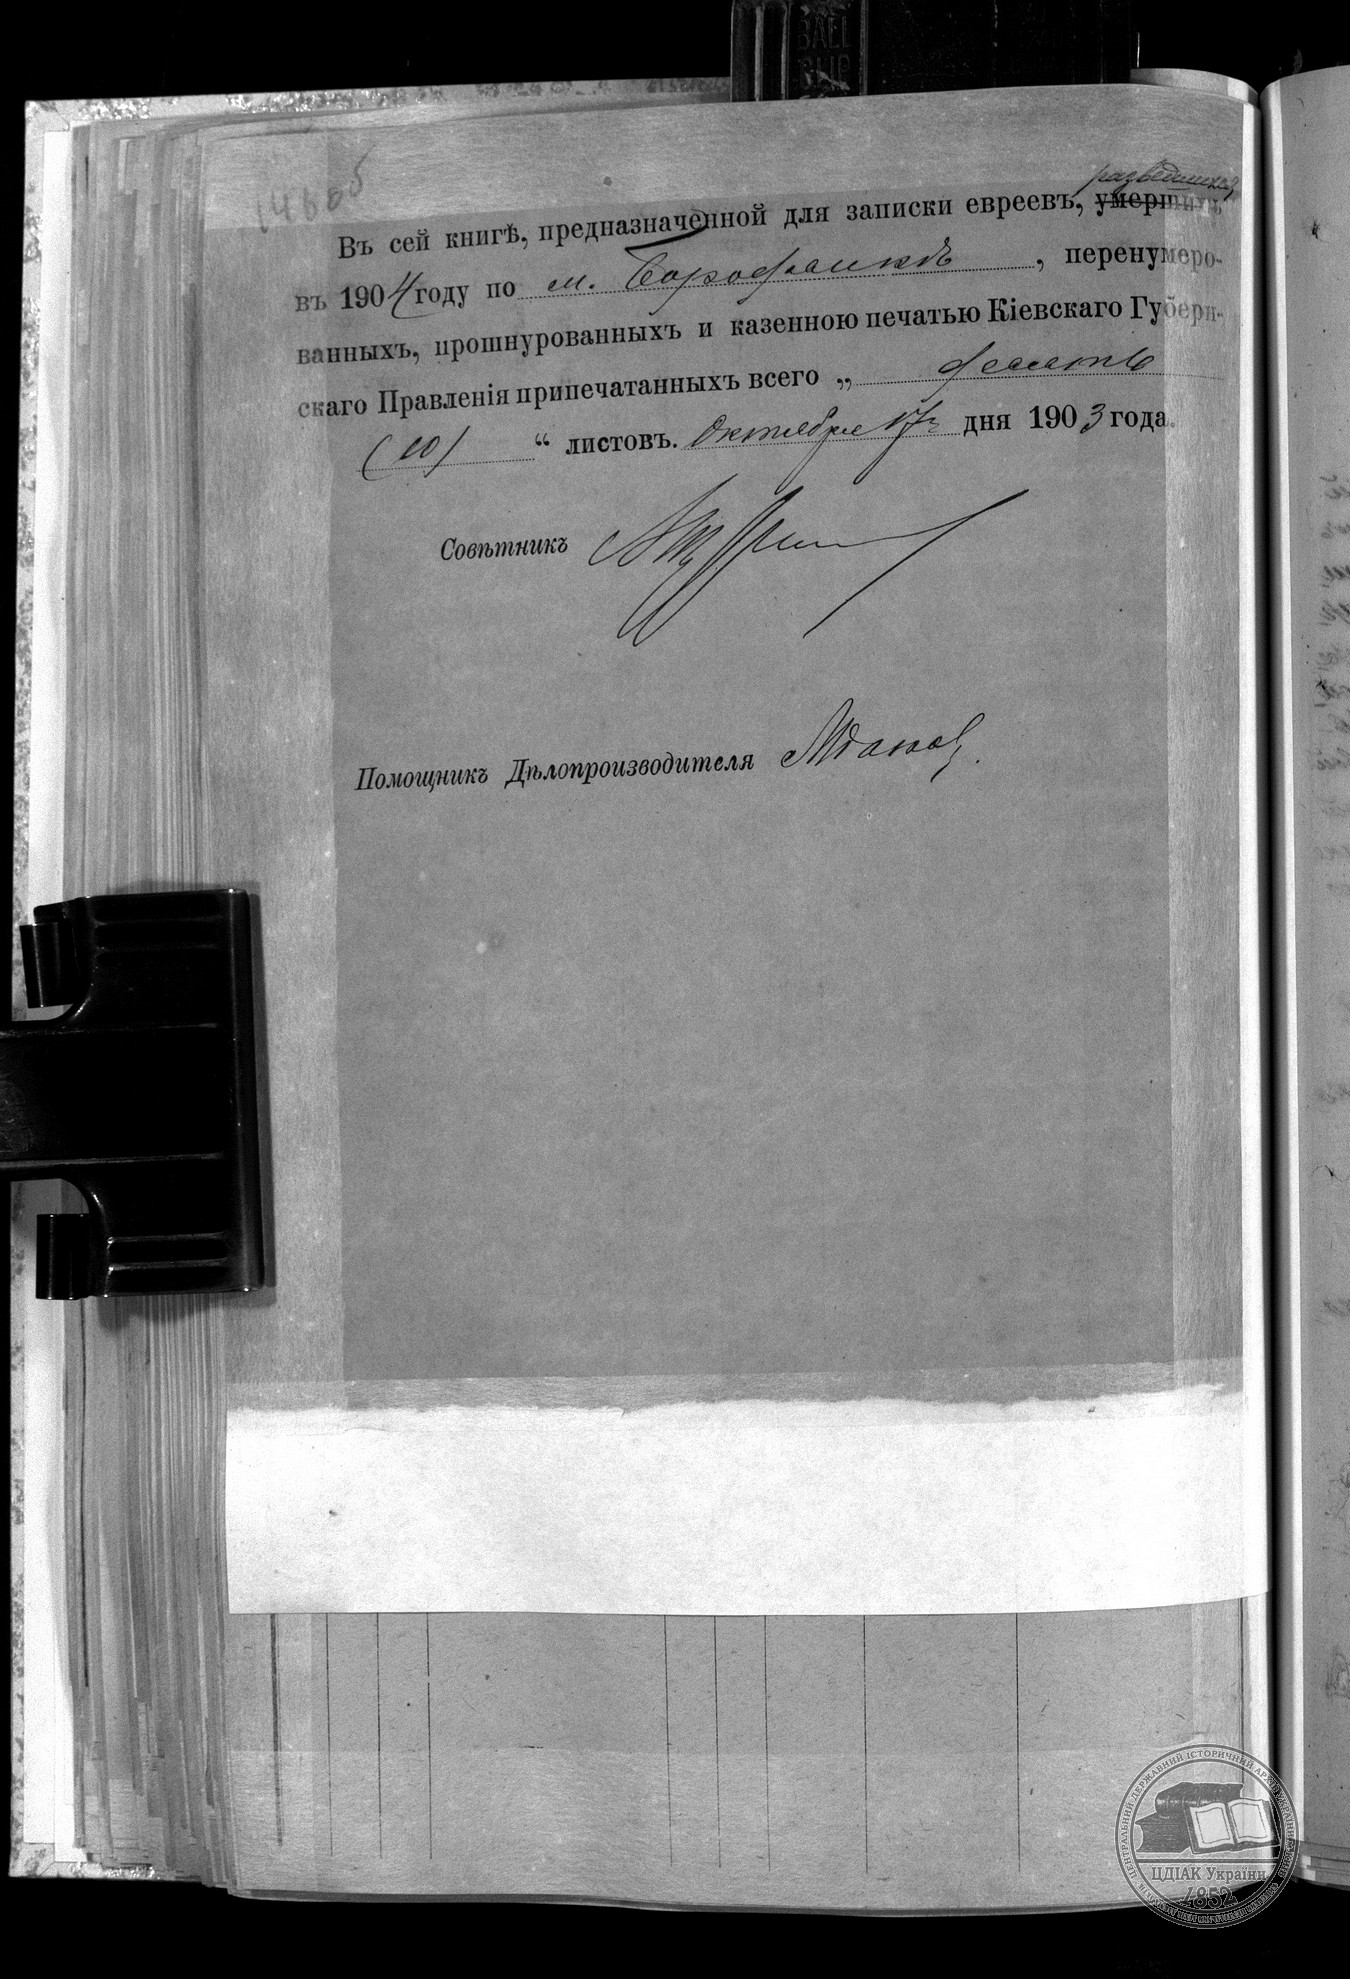 разведшихся
Въ сей книгѣ, предназначенной для записки евреевъ, умершихъ
въ 1904 году по м. , перенумеро-
ванныхъ, прошнурованныхъ и казенною печатью Кіевскаго Губерн-
скаго Правленія припечатанныхъ всего „ десять
(10) “ листовъ. Октября 17 дня 1903 года.
Совѣтникъ
Помощникъ Дѣлопроизводителя
ЦЕНТРАЛЬНИЙ ДЕРЖАВНИЙ ІСТОРИЧНИЙ АРХІВ УКРАЇНИ
ЦДІАК України
4852